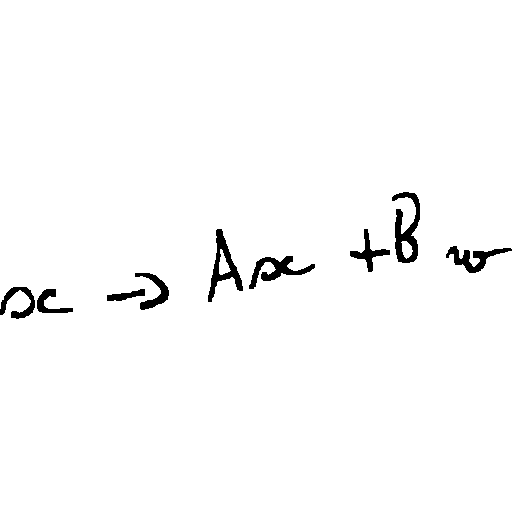 x → Ax + Bw